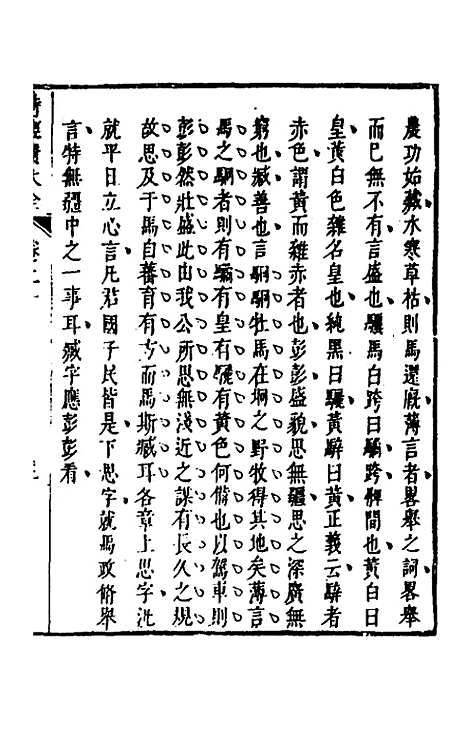 農功始藏水寒草枯則馬還廐薄言者畧舉之詞畧舉
而巳無不有言盛也驈馬白跨曰驈跨髀間也黃白曰
皇黃白色雜名皇也純黑曰驪黃騂曰黃正義云騂者
赤色謂黃而雜赤者也彭彭盛貌思無疆思之深廣無
窮也臧善也言駉駉牡馬在坰之野牧得其地矣薄言
馬之駉者則有驈有皇有驪有黃色何備也以駕車則
彭彭然壯盛此由我公所思無淺近之謀有長久之規
故思及于馬自養育有方而馬斯臧耳各章上思字泛
就平日立心言凡蒞國子民皆是下思字就馬政脩舉
言特無疆中之一事耳臧字應彭彭看
詩經大全